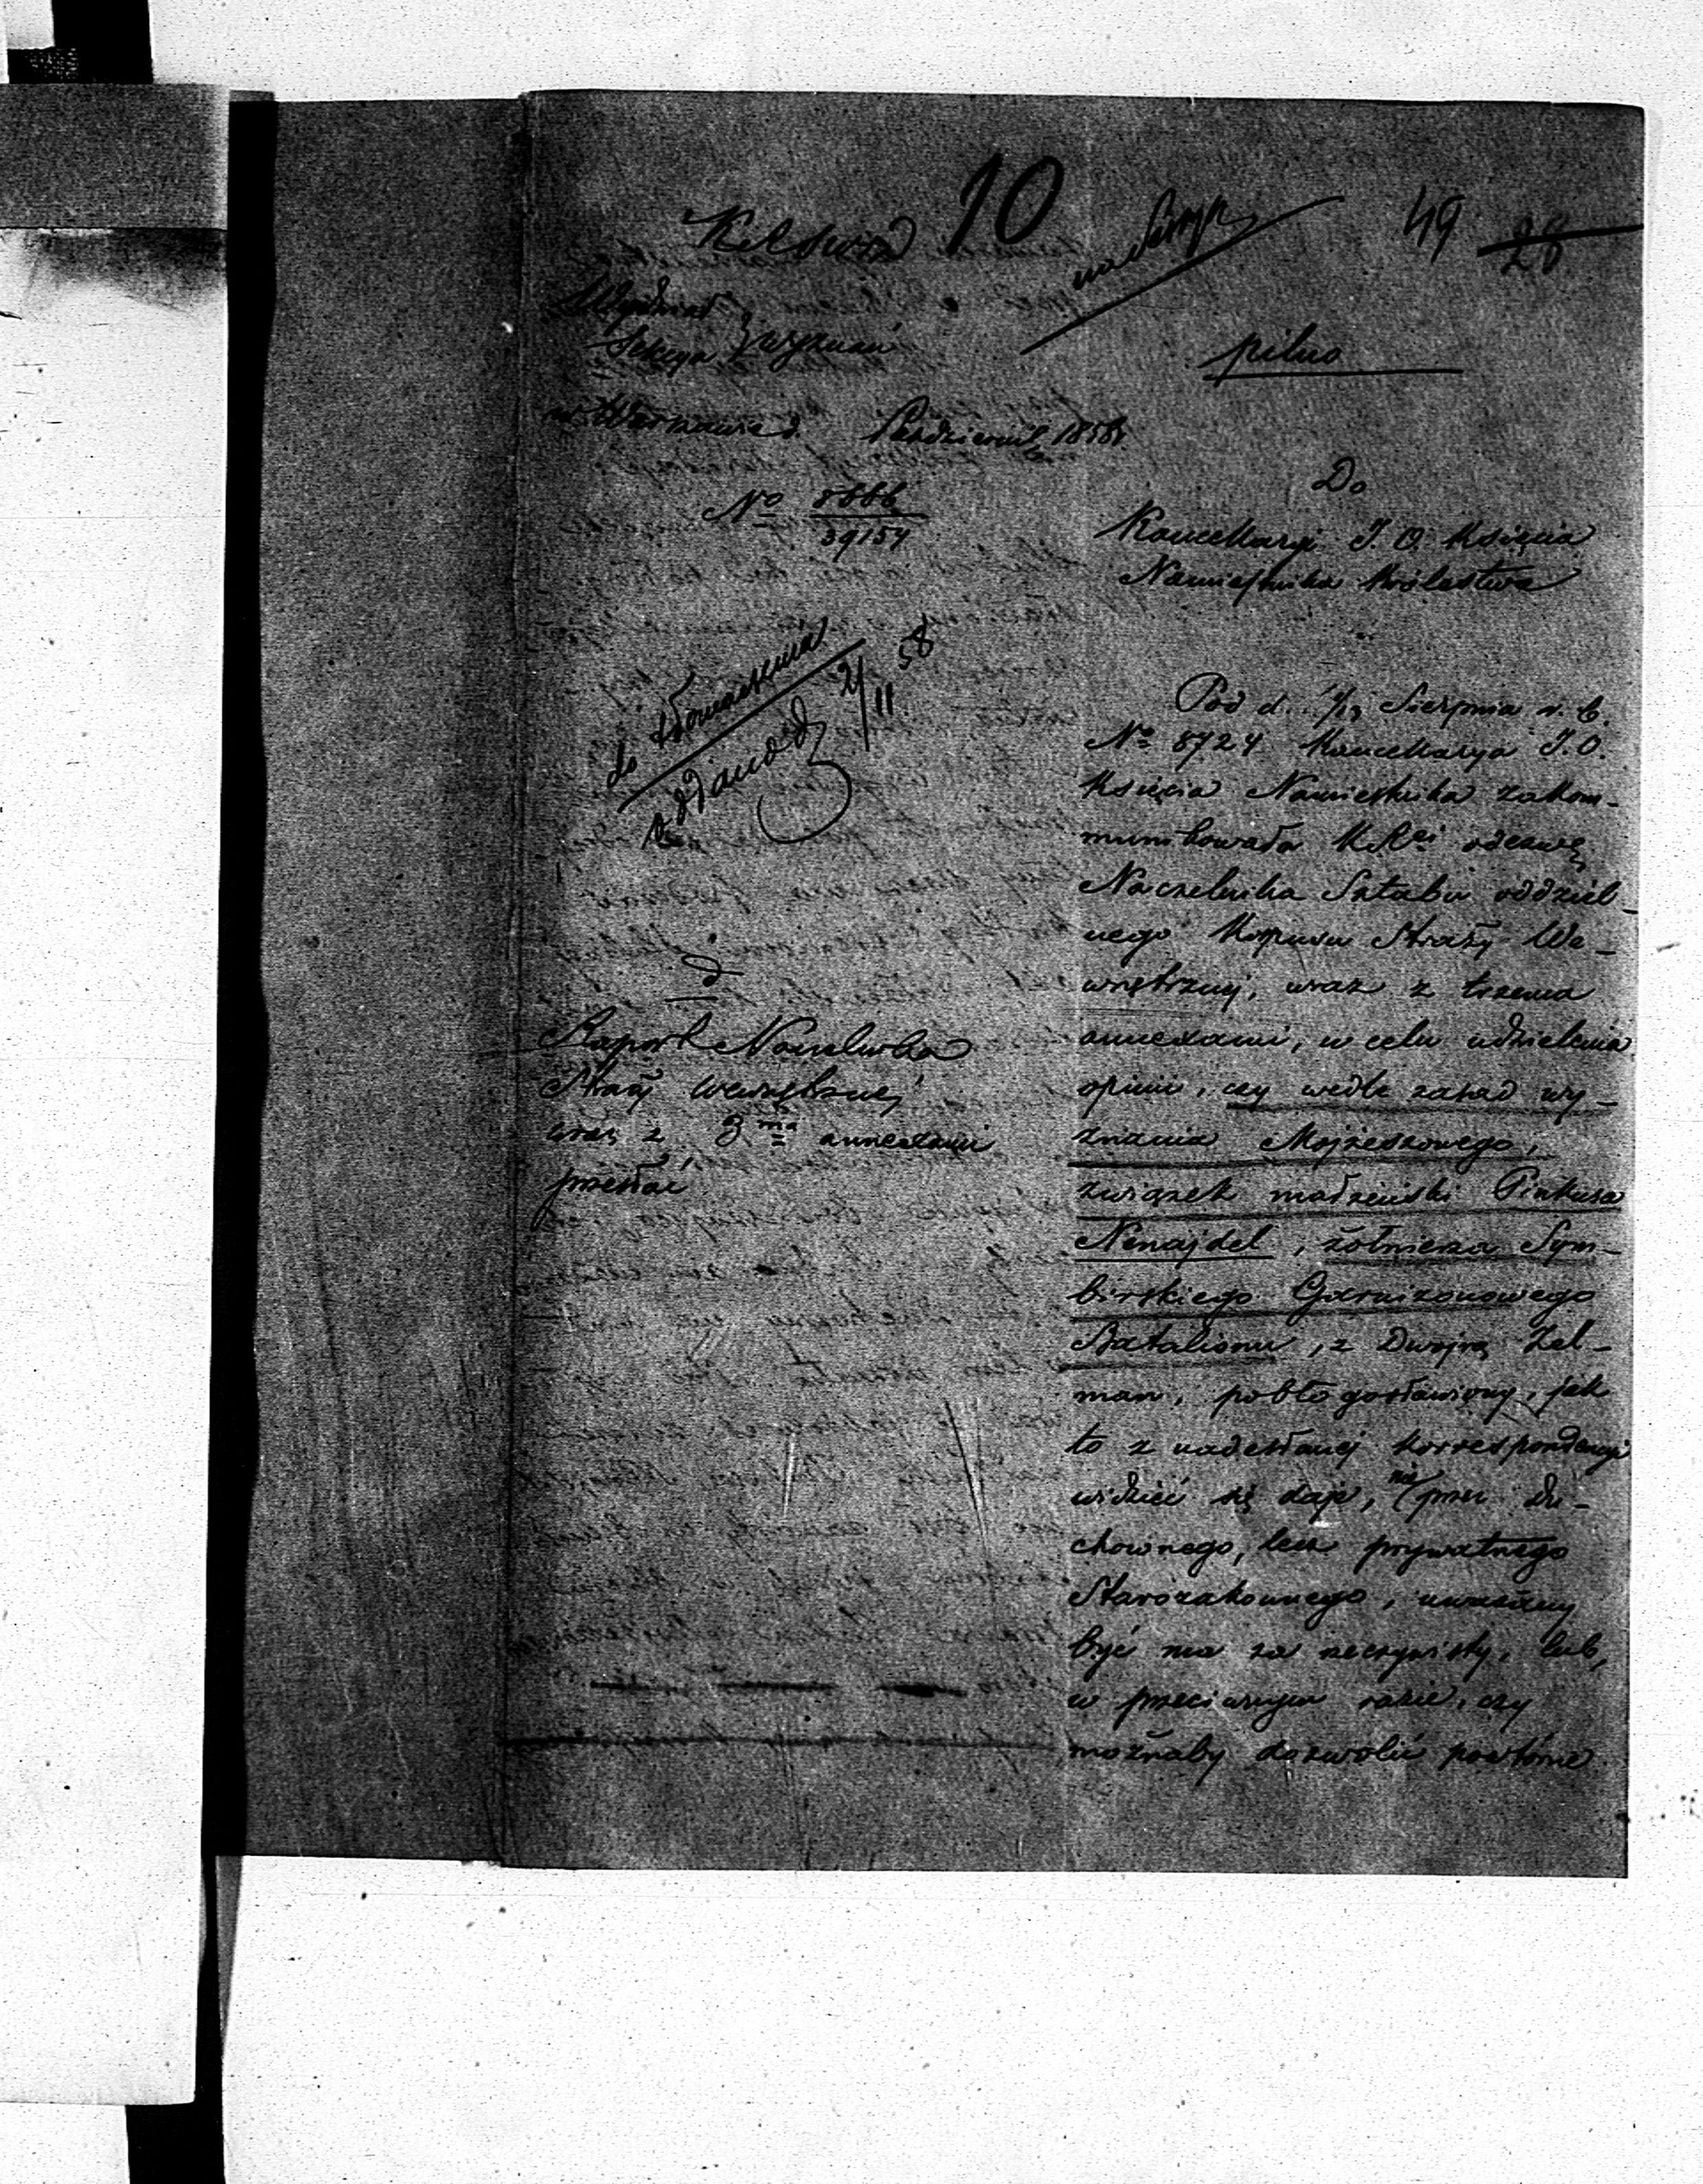 10
49
28
Wydział
Sekcya } Wyznań
pilno
w Warszawie d. Październik 1858 r.
No 8666
39154
Do
Kancellaryi J. O. Księcia
Namiestnika Królestwa
do tłomaczenia
oddano d. 2/11 58
Pod d. 1/13 Sierpnia r. b.
No 8724 Kancellarya J. O.
Księcia Namiestnika zakom-
munikowała KRei odezwę
Naczelnika Sztabu oddziel-
nego Korpusu Straży We-
wnętrznej, wraz z trzema
annexami, w celu udzielenia
opinii, czy wedle zasad wy-
znania Mojżeszowego,
związek małżeński Pinkusa
Nenajdel, żołnierza Sym-
birskiego Garnizonowego
Batalionu, z Dwojrą Zel-
man, pobłogosławiony, jak
to z nadesłanej korrespondencyi
widzieć się daje, nie przez Du-
chownego, lecz prywatnego
Starozakonnego, uważany
być ma za rzeczywisty, lub,
w przeciwnym razie, czy
możnaby dozwolić powtórne
Raport Naczelnika
Straży wewnętrznej
wraz z 3ma annexami
przesłać